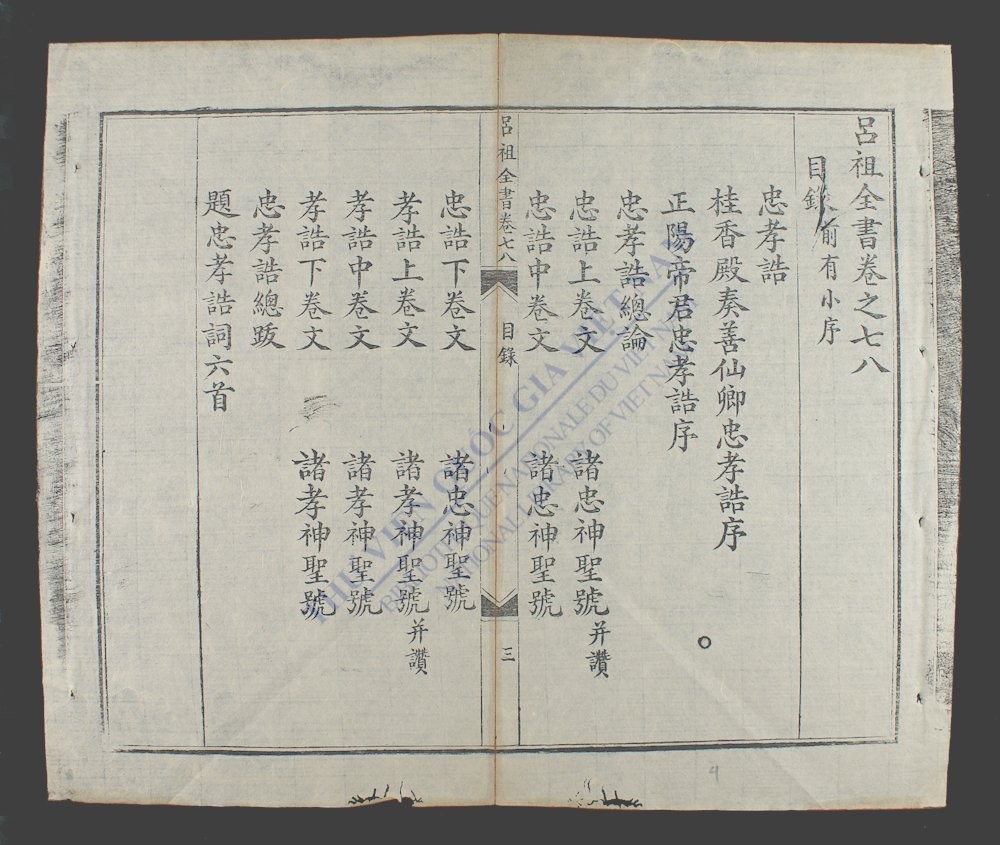 呂祖全書卷之七八
目錄 前有小序
忠孝誥
桂香殿奏善仙卿忠孝誥序
正陽帝君忠孝誥序
忠孝誥總論
忠誥上卷文 諸忠神聖號 并讚
忠誥中卷文 諸忠神聖號
呂祖全書卷七八 目錄 三
忠誥下卷文 諸忠神聖號
孝誥上卷文 諸孝神聖號 并讚
孝誥中卷文 諸孝神聖號
孝誥下卷文 諸孝神聖號
忠孝誥總跋
題忠孝誥詞六首
THƯ VIỆN QUỐC GIA VIỆT NAM
BIBLIOTHÈQUE NATIONALE DU VIETNAM
NATIONAL LIBRARY OF VIETNAM
4